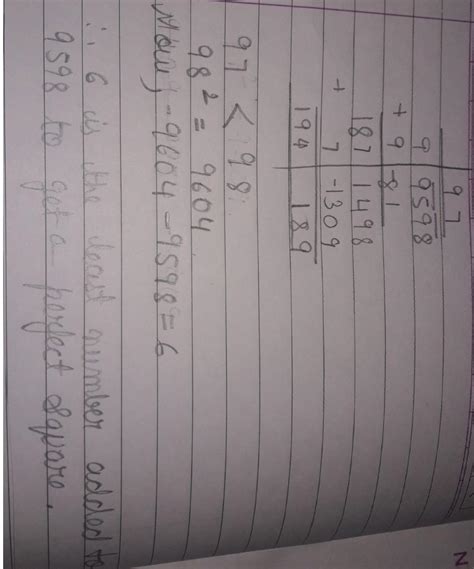 97
9 9598
+ 9 -81
187 1498
+ 7 -1309
194 189
97 < 98
98² = 9604
Now, - 9604 - 9598 = 6
∴ 6 is the least number added to
9598 to get a perfect square.